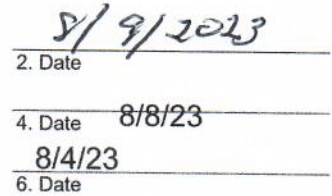 8/9/2023
2. Date
4. Date 8/8/23
8/4/23
6. Date